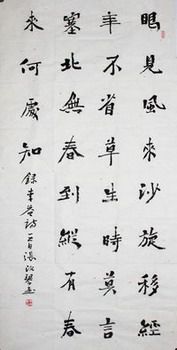 眼見風來沙旋移經
年不省草生時莫言
塞北無春到縱有春
來何處知
錄李益詩